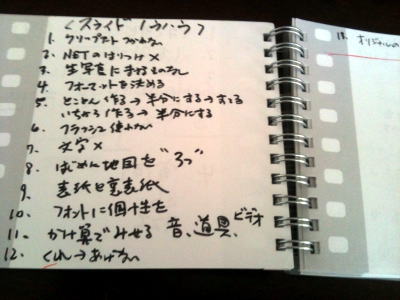 〈スライド ノウハウ〉
1. クリップアート つかわない
2. NETのはりつけ ×
3. 生写真にまさるものなし
4. フォーマットを決める
5. とことん作る→半分にする→すてる
いちから作る→半分にする
6. フラッシュ使わない
7. 文字×
8. はじめに地図を"3つ"
9. 表紙と裏表紙
10. フォントに個性を
11. かけ算でみせる 音、道具、ビデオ
12. くれ→あげない
13. オリジナルの